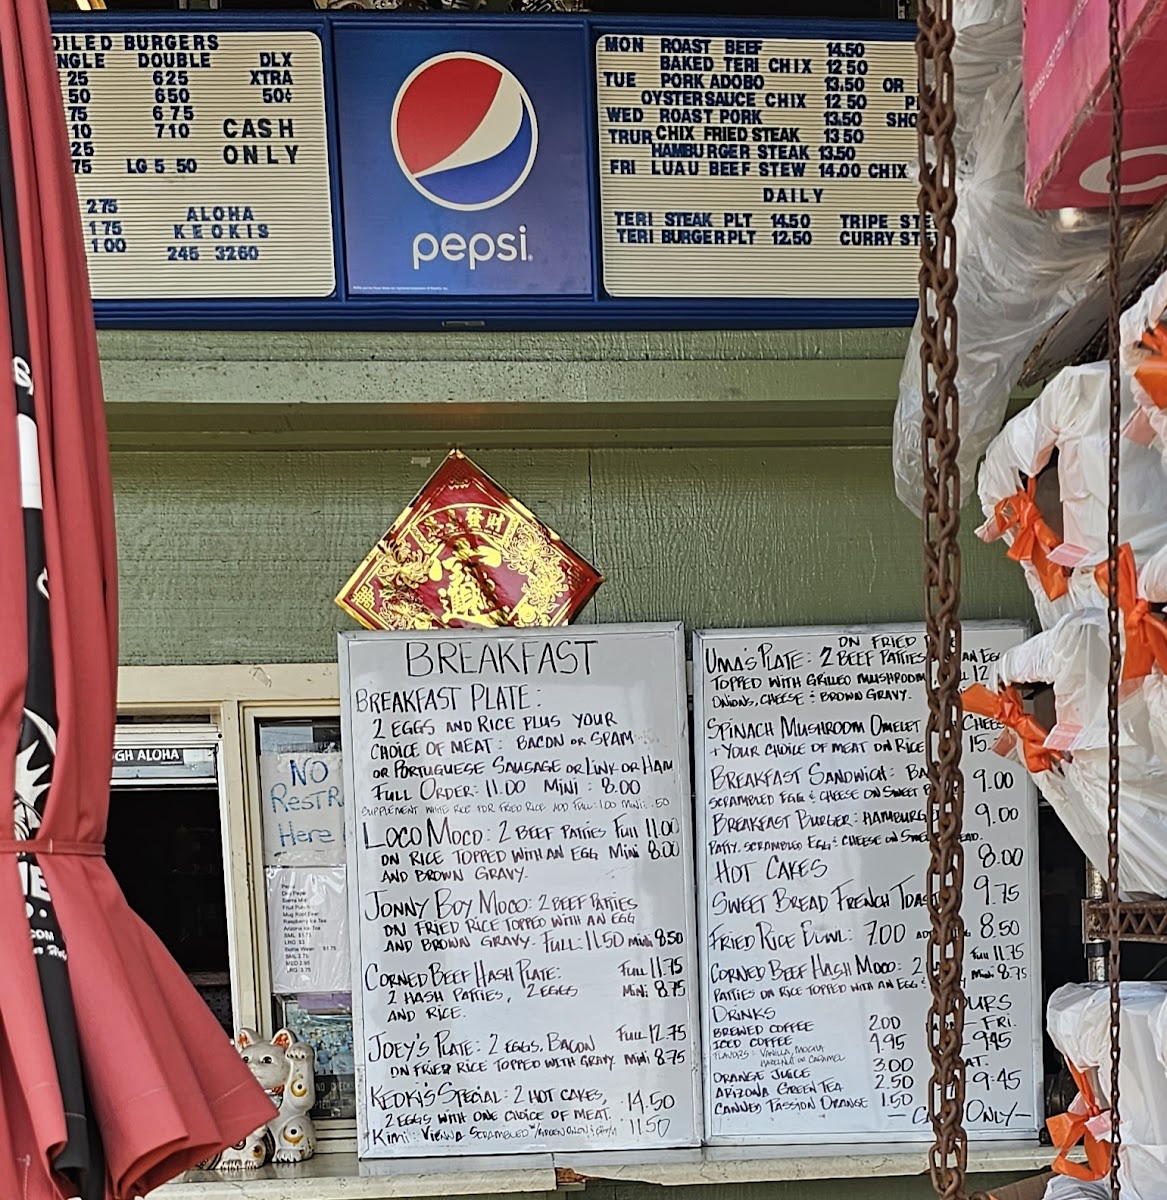 OILED BURGERS
NGLE DOUBLE DLX
25 625 XTRA
50 650 50¢
75 675
10 710 CASH
25 ONLY
75 LG 5 50
275
175
100
ALOHA
KEOKIS
245 3260
pepsi
MON ROAST BEEF 14.50
BAKED TERI CHIX 12 50
TUE PORK ADOBO 13.50 OR
OYSTERSAUCE CHIX 12 50 P
WED ROAST PORK 13.50 SHO
TRUR CHIX FRIED STEAK 13 50
HAMBURGER STEAK 13.50
FRI LUAU BEEF STEW 14.00 CHIX
DAILY
TERI STEAK PLT 14.50 TRIPE STE
TERI BURGER PLT 12.50 CURRY STE
發財
GH ALOHA
NO
RESTR
Here
BREAKFAST
BREAKFAST PLATE:
2 EGGS AND RICE PLUS YOUR
CHOICE OF MEAT: BACON OR SPAM
OR PORTUGUESE SAUSAGE OR LINK OR HAM
FULL ORDER: 11.00 MINI: 8.00
SUPPLEMENT WHITE RICE FOR FRIED RICE ADD FULL: 1.00 MINI: .50
LOCO MOCO: 2 BEEF PATTIES FULL 11.00
ON RICE TOPPED WITH AN EGG MINI 8.00
AND BROWN GRAVY.
JONNY BOY MOCO: 2 BEEF PATTIES
ON FRIED RICE TOPPED WITH AN EGG
AND BROWN GRAVY. FULL: 11.50 MINI 8.50
CORNED BEEF HASH PLATE: FULL 11.75
2 HASH PATTIES, 2 EGGS MINI 8.75
AND RICE.
JOEY'S PLATE: 2 EGGS, BACON FULL 12.75
ON FRIED RICE TOPPED WITH GRAVY MINI 8.75
KEOKI'S SPECIAL: 2 HOT CAKES,
2 EGGS WITH ONE CHOICE OF MEAT. 14.50
KIMI: VIENNA SCRAMBLED W/GREEN ONION 11.50
ON FRIED
UMA'S PLATE: 2 BEEF PATTIES AN EGG
TOPPED WITH GRILLED MUSHROOM 12
ONIONS, CHEESE & BROWN GRAVY.
SPINACH MUSHROOM OMELET CHEES
+ YOUR CHOICE OF MEAT ON RICE 15.
BREAKFAST SANDWICH: BA 9.00
SCRAMBLED EGG & CHEESE ON SWEET B
BREAKFAST BURGER: HAMBURG 9.00
PATTY, SCRAMBLED EGG & CHEESE ON SWEE EAD.
HOT CAKES 8.00
SWEET BREAD FRENCH TOAS 9.75
FRIED RICE BOWL: 7.00 8.50
CORNED BEEF HASH MOCO: 2 FULL 11.75
PATTIES ON RICE TOPPED WITH AN EGG & MINI 8.75
DRINKS
BREWED COFFEE 2.00
ICED COFFEE 4.95
FLAVORS: VANILLA, MOCHA
HAZELNUT OR CARAMEL
ORANGE JUICE 3.00
ARIZONA GREEN TEA 2.50
CANNED PASSION ORANGE 1.50
OURS
– FRI.
9:45
AT.
– 9:45
— CA ONLY —